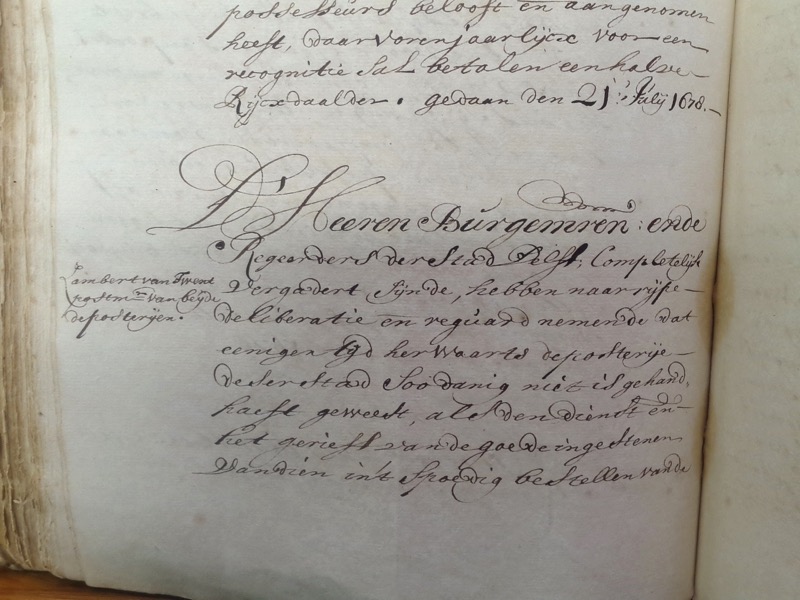 possesseurs belooft en aangenomen
heeft, daar voren jaarlijcx voor een
recognitie sal betalen een halve
Rijcxdaalder. gedaan den 21:' Julij 1678.
D' Heeren Burgemren: ende
Regeerders der Stad Delft, Completelijk
Vergadert sijnde, hebben naar rijpe
deliberatie en reguard nemende dat
eenigen tijd herwaarts de posterije
deser stad soodanig niet is gehand,
haeft geweest, als den dienst en
het gerieff van de goede ingesetenen
van dien in't spoedig bestellen van de
Lambert van Twent
postmr van beijde
de posterijen.